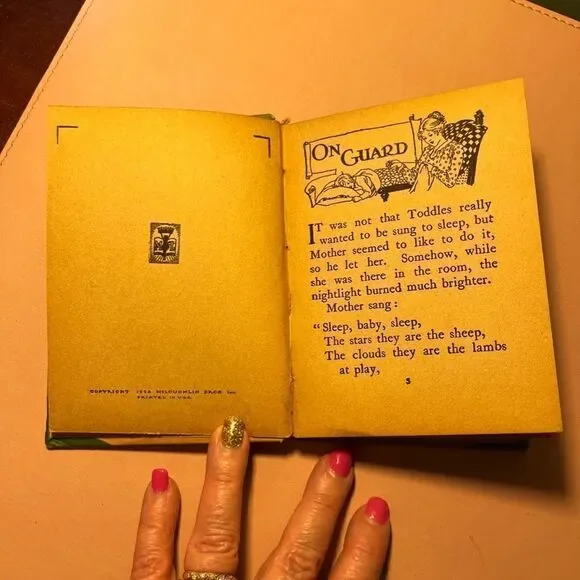 COPYRIGHT McLOUGHLIN BROS. INC.
PRINTED IN U.S.A.
ON GUARD
IT was not that Toddles really
wanted to be sung to sleep, but
Mother seemed to like to do it,
so he let her. Somehow, while
she was there in the room, the
nightlight burned much brighter.
Mother sang:
"Sleep, baby, sleep,
The stars they are the sheep,
The clouds they are the lambs
at play,
5